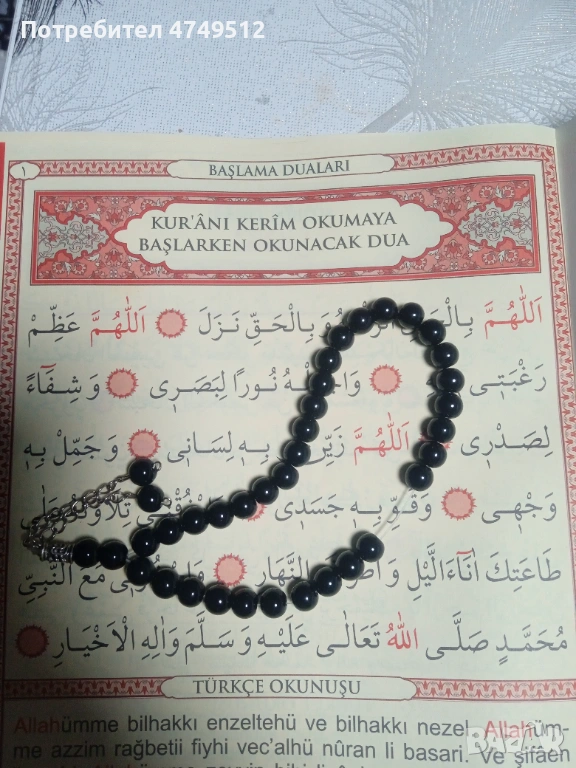 Потребител 4749512
١
BAŞLAMA DUALARI
KUR'ÂNI KERÎM OKUMAYA
BAŞLARKEN OKUNACAK DUA
اَللّٰهُمَّ وَبِالْحَقِّ نَزَلَ اَللّٰهُمَّ عَظِّمْ
رَغْبَتٖى نُورًا لِبَصَرٖى وَشِفَٓاءً
لِصَدْرٖى اَللّٰهُمَّ بِهٖ لِسَانٖى وَجَمِّلْ بِهٖ
وَجْهٖى وَقَوِّ بِهٖ جَسَدٖى
طَاعَتِكَ اٰنَٓاءَ الَّيْلِ النَّهَارِ مَعَ النَّبِىِّ
مُحَمَّدٍ صَلَّى اللّٰهُ تَعَالٰى عَلَيْهِ وَسَلَّمَ وَاٰلِهِ الْاَخْيَارِ
TÜRKÇE OKUNUŞU
Allahümme bilhakkı enzeltehü ve bilhakkı nezel Allahüm-
me azzim rağbetii fiyhi vec'alhü nûran li basari. Ve şifâen